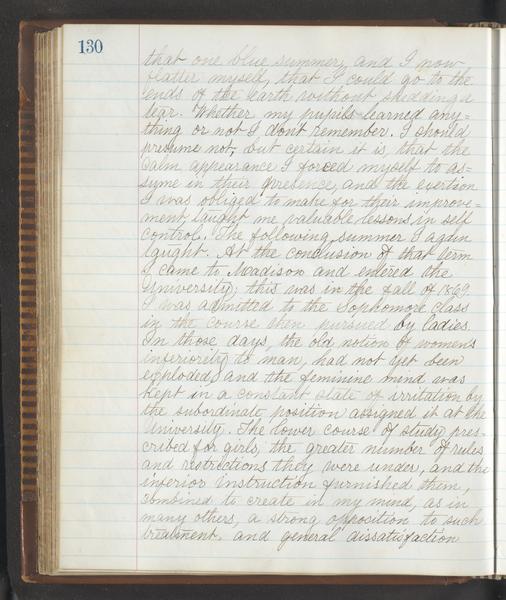 130
that one blue summer, and I now
flatter myself, that I could go to the
ends of the earth without shedding a
tear. Whether my pupils learned any=
thing or not I dont remember. I should
presume not, but certain it is, that the
calm appearance I forced myself to as=
sume in their presence, and the exertion
I was obliged to make for their improve=
ment, taught me valuable lessons in self
control. The following summer I again
taught. At the conclusion of that term
I came to Madison and entered the
University; this was in the fall of 1869.
I was admitted to the Sophomore class
in the course then pursued by ladies.
In those days, the old notion of women's
inferiority to man, had not yet been
exploded, and the feminine mind was
kept in a constant state of irritation by
the subordinate position assigned it at the
University. The lower course of study pres=
cribed for girls, the greater number of rules
and restrictions they were under, and the
inferior instruction furnished them,
combined to create in my mind, as in
many others, a strong opposition to such
treatment. and general dissatisfaction